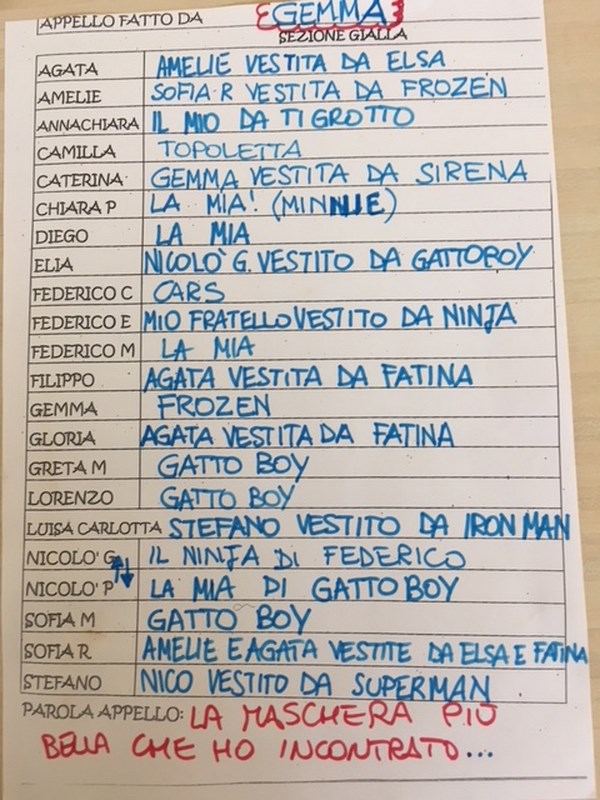 APPELLO FATTO DA GEMMA
SEZIONE GIALLA
AGATA AMELIE VESTITA DA ELSA
AMELIE SOFIA R VESTITA DA FROZEN
ANNACHIARA IL MIO DA TIGROTTO
CAMILLA TOPOLETTA
CATERINA GEMMA VESTITA DA SIRENA
CHIARA P LA MIA! (MINNIE)
DIEGO LA MIA
ELIA NICOLO' G. VESTITO DA GATTOBOY
FEDERICO C CARS
FEDERICO E MIO FRATELLO VESTITO DA NINJA
FEDERICO M LA MIA
FILIPPO AGATA VESTITA DA FATINA
GEMMA FROZEN
GLORIA AGATA VESTITA DA FATINA
GRETA M GATTO BOY
LORENZO GATTO BOY
LUISA CARLOTTA STEFANO VESTITO DA IRON MAN
NICOLO' G IL NINJA DI FEDERICO
NICOLO' P LA MIA DI GATTO BOY
SOFIA M GATTO BOY
SOFIA R AMELIE E AGATA VESTITE DA ELSA E FATINA
STEFANO NICO VESTITO DA SUPERMAN
PAROLA APPELLO: LA MASCHERA PIÙ
BELLA CHE HO INCONTRATO...